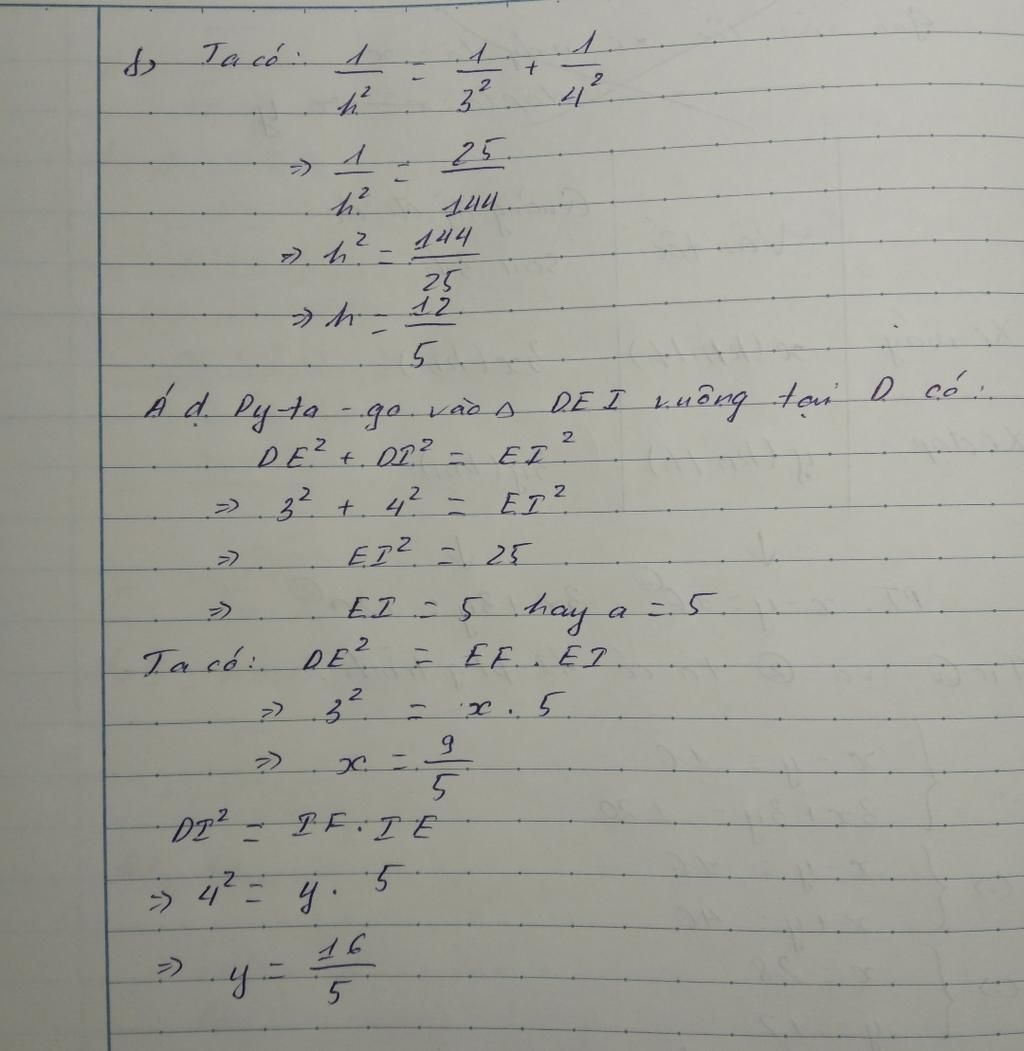 b) Ta có: 1/h² = 1/3² + 1/4²
=> 1/h² = 25/144
=> h² = 144/25
=> h = 12/5
Á d. Py-ta-go vào △ DEI vuông tại D có:
DE² + DI² = EI²
=> 3² + 4² = EI²
=> EI² = 25
=> EI = 5 hay a = 5
Ta có: DE² = EF . EI
=> 3² = x . 5
=> x = 9/5
DI² = IF . IE
=> 4² = y . 5
=> y = 16/5